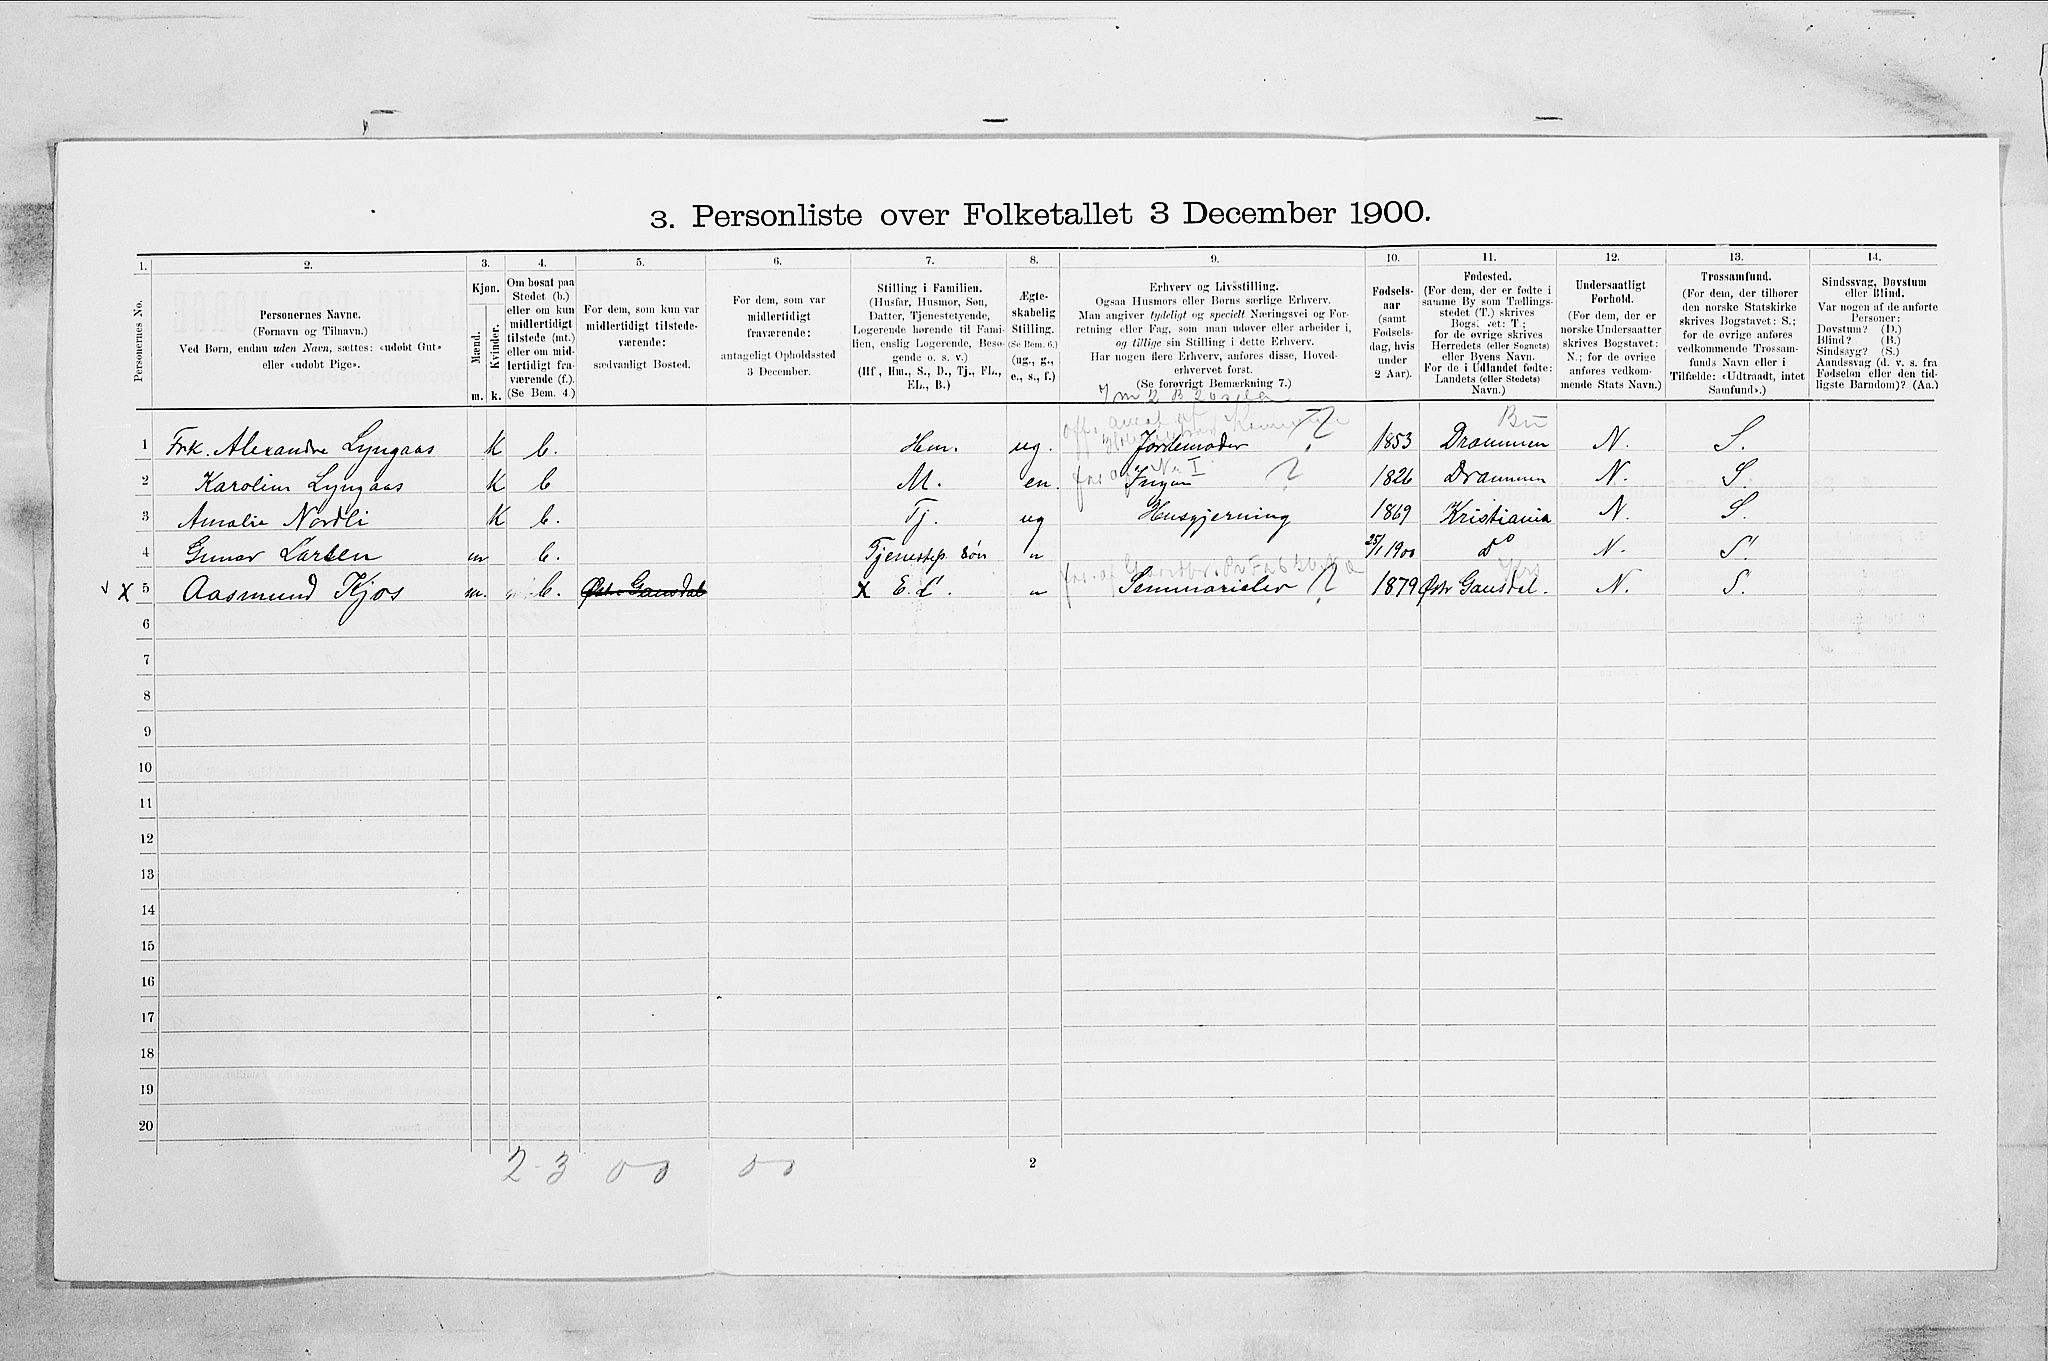 3. Personliste over Folketallet 3 December 1900.
1. 2. 3. 4. 5. 6. 7. 8. 9. 10. 11. 12. 13. 14.
Personernes No.
Personernes Navne.
(Fornavn og Tilnavn.)
Ved Børn, endnu uden Navn, sættes: «udøbt Gut»
eller «udøbt Pige».
Kjøn.
Mænd.
Kvinder.
m. k.
Om bosat paa
Stedet (b.)
eller om kun
midlertidigt
tilstede (mt.)
eller om mid-
lertidigt fra-
værende (f.).
(Se Bem. 4.)
For dem, som kun var
midlertidigt tilstede-
værende:
sædvanligt Bosted.
For dem, som var
midlertidigt
fraværende:
antageligt Opholdssted
3 December.
Stilling i Familien.
(Husfar, Husmor, Søn,
Datter, Tjenestetyende,
Logerende hørende til Fami-
lien, enslig Logerende, Besø-
gende o. s. v.)
(Hf., Hm., S., D., Tj., FL.,
EL., B.)
Ægte-
skabelig
Stilling.
(Se Bem. 6.)
(ug., g.,
e., s., f.)
Erhverv og Livsstilling.
Ogsaa Husmors eller Børns særlige Erhverv.
Man angiver tydeligt og specielt Næringsvei og For-
retning eller Fag, som man udøver eller arbeider i,
og tillige sin Stilling i dette Erhverv.
Har nogen flere Erhverv, anføres disse, Hoved-
erhvervet først.
(Se forøvrigt Bemærkning 7.)
Fødsels-
aar
(samt
Fødsels-
dag, hvis
under
2 Aar).
Fødested.
(For dem, der er fødte i
samme By som Tællings-
stedet (T.) skrives
Bogstavet: T.;
for de øvrige skrives
Herredets (eller Sognets)
eller Byens Navn.
For de i Udlandet fødte:
Landets (eller Stedets)
Navn.)
Undersaatligt
Forhold.
(For dem, der er
norske Undersaatter
skrives Bogstavet:
N.; for de øvrige
anføres vedkom-
mende Stats Navn.)
Trossamfund.
(For dem, der tilhører
den norske Statskirke
skrives Bogstavet: S.;
for de øvrige anføres
vedkommende Trossam-
funds Navn eller i
Tilfælde: «Udtraadt, intet
Samfund».)
Sindssvag, Døvstum
eller Blind.
Var nogen af de anførte
Personer:
Døvstum? (D.)
Blind? (B.)
Sindssyg? (S.)
Aandssvag (d. v. s. fra
Fødselen eller den tid-
ligste Barndom)? (Aa.)
1 Frk. Alexandra Lyngaas K b. Hm. ug. Jordemoder ? 1853 Drammen N. S.
2 Karoline Lyngaas K b M. en. Ingen ? 1826 Drammen N. S.
3 Amalie Nordli K b. Tj. ug Husgjerning 1869 Kristiania N. S.
4 Gunar Larsen m b. Tjenestep. Søn " 25/1 1900 do N. S.
x 5 Aasmund Kjos m. b. Østre Gausdal x E. L. " Seminarielev ? 1879 Østr Gausdal. N. S.
6
7
8
9
10
11
12
13
14
15
16
17
18
19
20
2-3 0 0 0 0
2